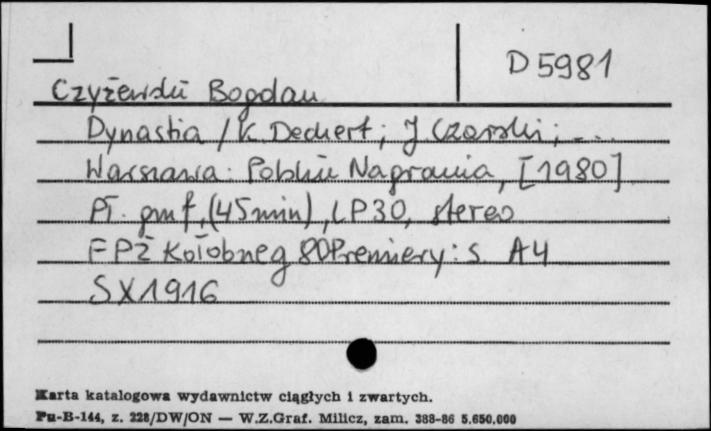 D 5981
Czyżewski Bogdan
Dynastia / K. Deckert; J. Czerski; ...
Warszawa: Polskie Nagrania, [1980]
Pł. gmf, (45 min), LP30, stereo
FPŻ Kołobrzeg 80 Premiery: s. A4
SX1916
Karta katalogowa wydawnictw ciągłych i zwartych.
Pu-B-144, z. 228/DW/ON — W.Z.Graf. Milicz, zam. 388-86 5.650.000